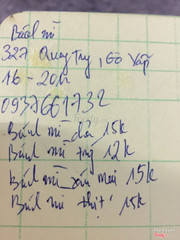 Bánh mì
327 Quang Trung, Gò Vấp
16 - 20h
0937661732
Bánh mì đá 15k
Bánh mì trứng 12k
Bánh mì xíu mại 15k
Bánh mì thịt 15k